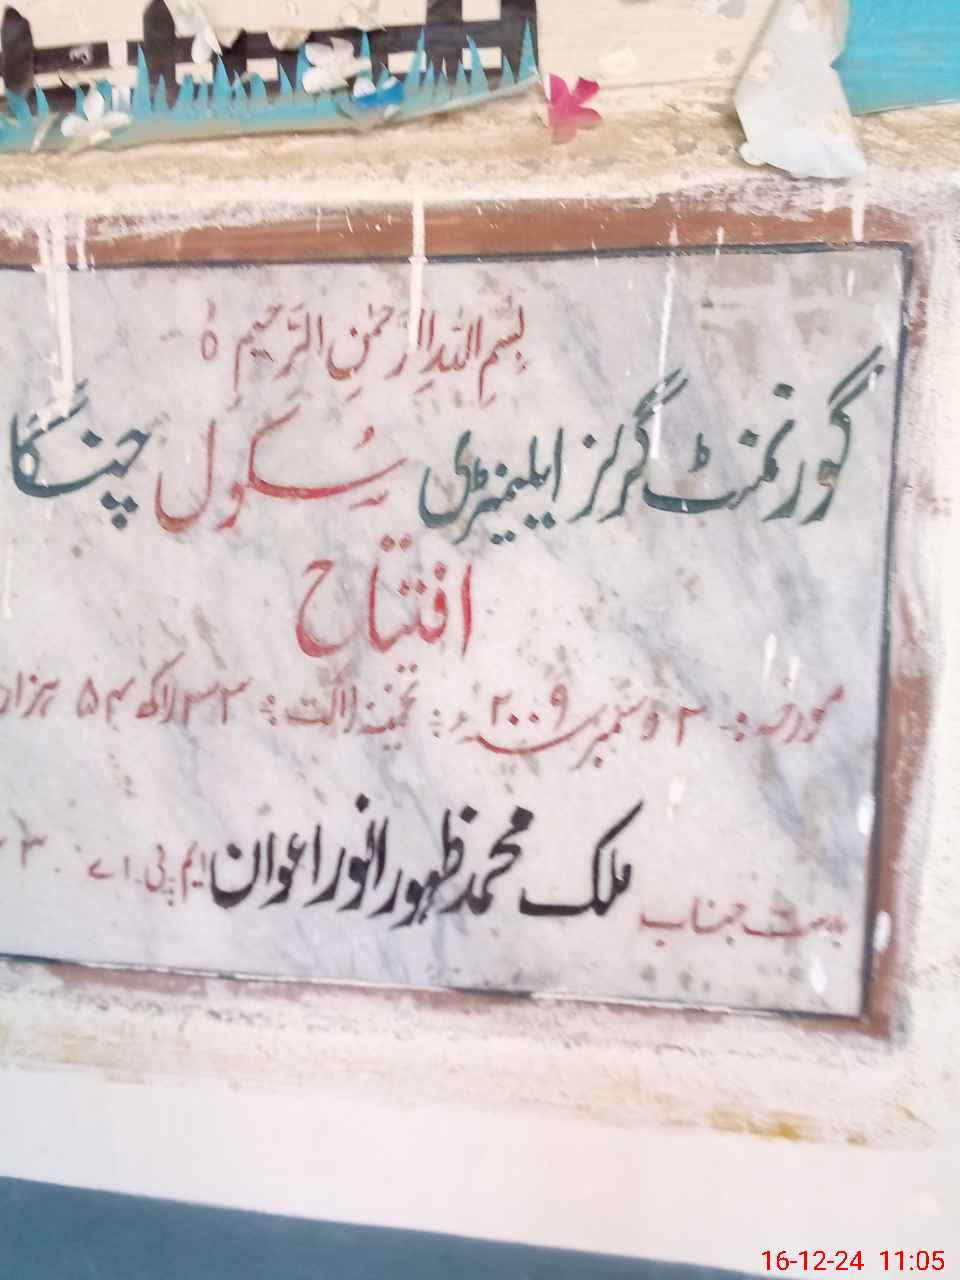 بِسْمِ اللهِ الرَّحْمٰنِ الرَّحِيمِ ٥
گورنمنٹ گرلز ایلیمنٹری سکول چنگا
افتتاح
مورخہ :- ۲ دسمبر ۲۰۰۹ء : تخمینہ لاگت :- ۳۳ لاکھ ۵۴ ہزار
بدست جناب ملک محمد ظہور انور اعوان ایم پی۔ اے
16-12-24 11:05